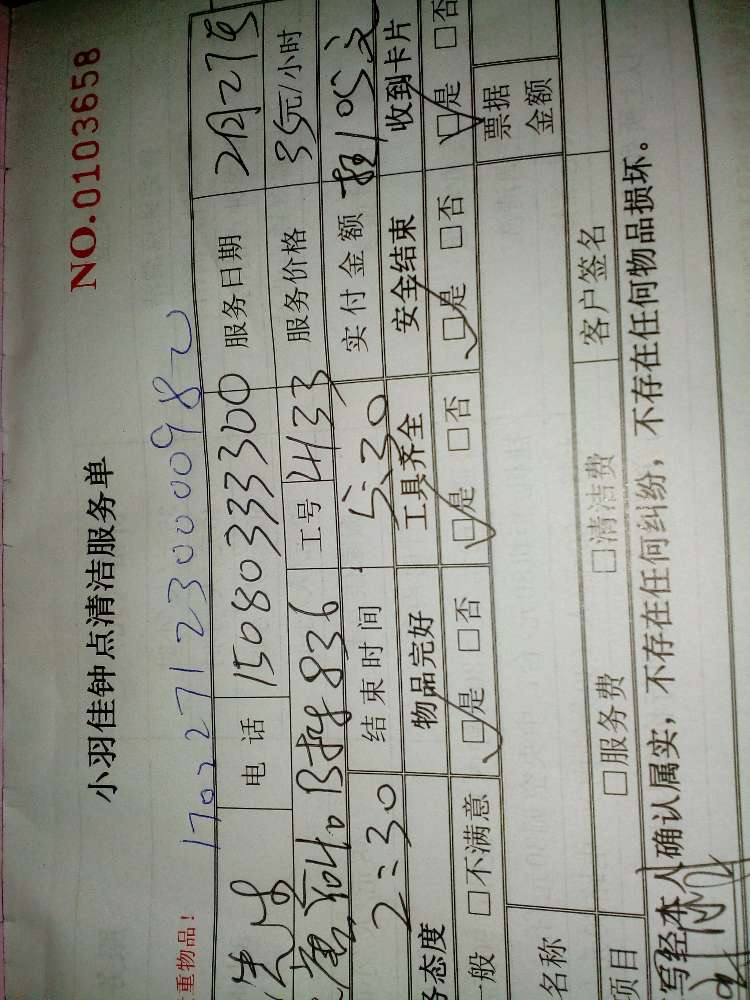 NO.0103658
小羽佳钟点清洁服务单
重物品！
17022712300000982
先生 电话 15080333300 服务日期 2月27号
B栋836 工号 1433 服务价格 35元/小时
2:30 结束时间 5:30 实付金额 105元
务态度 物品完好 工具齐全 安全结束 收到卡片
一般 □不满意 □是 □否 □是 □否 □是 □否 □是 □否
票据金额
名称
项目 □服务费 □清洁费 客户签名
写经本人确认属实，不存在任何纠纷，不存在任何物品损坏。